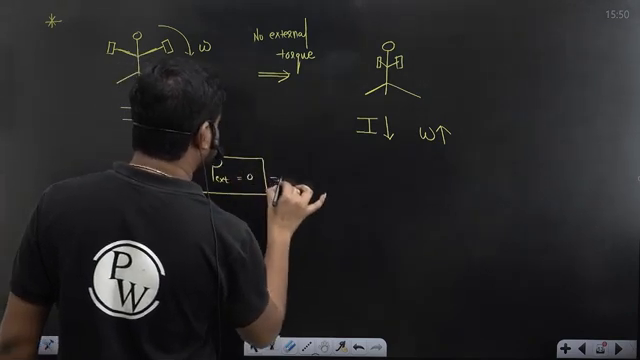 15:50
*
ω
No external
torque
⇒
I↓ ω↑
τext = 0
P
W